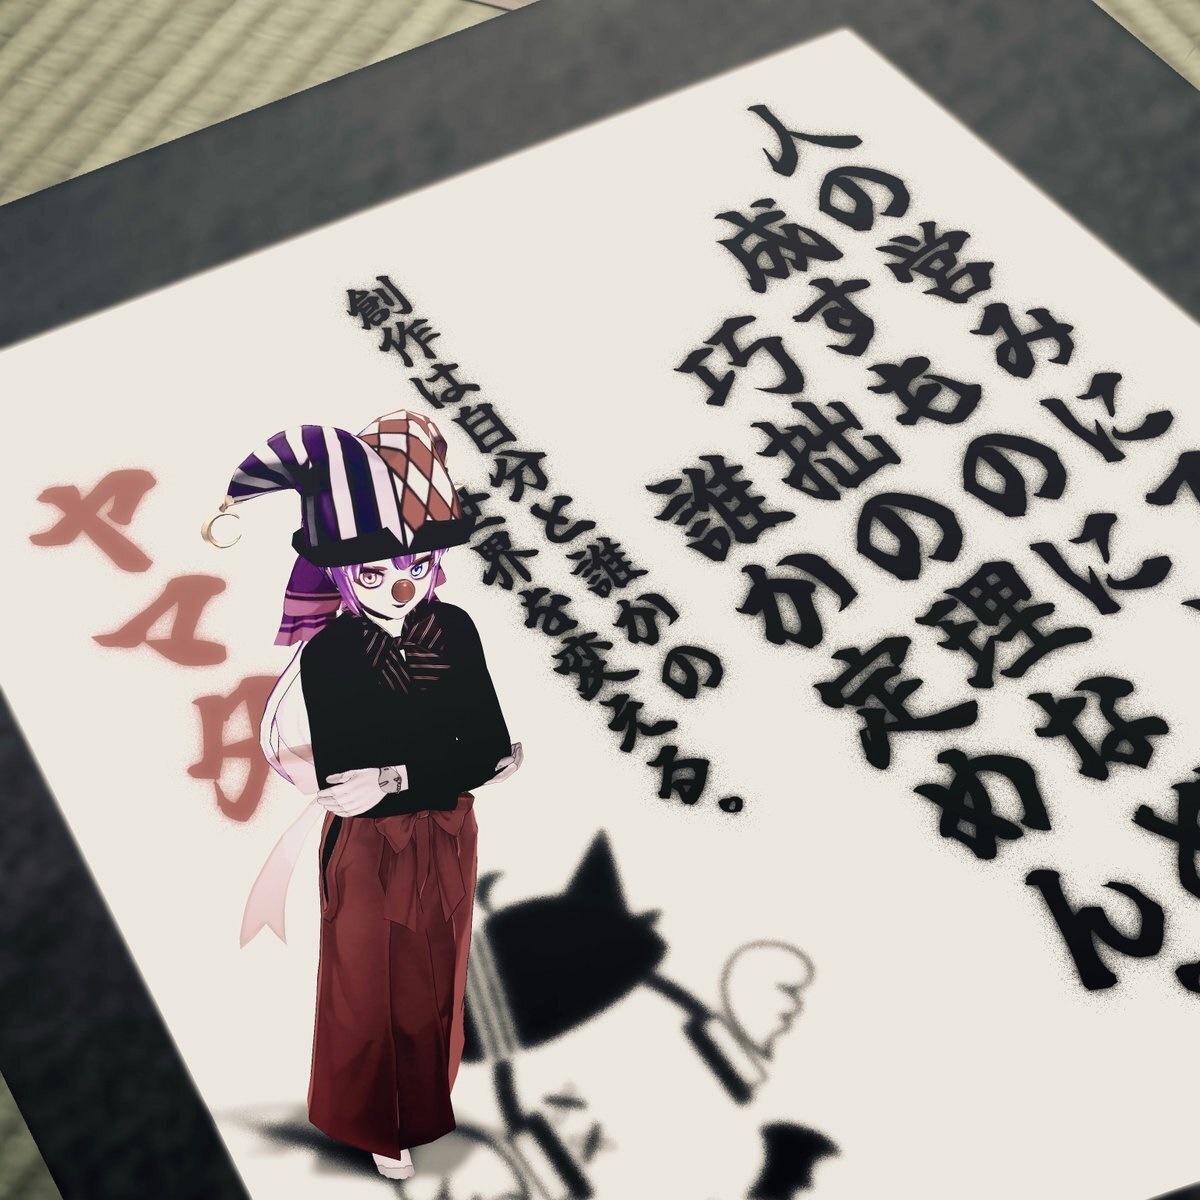 人の営みに
成すものに
巧拙の理な
誰か定めん
創作は自分と誰かの
世界を変える。
ヤマタ